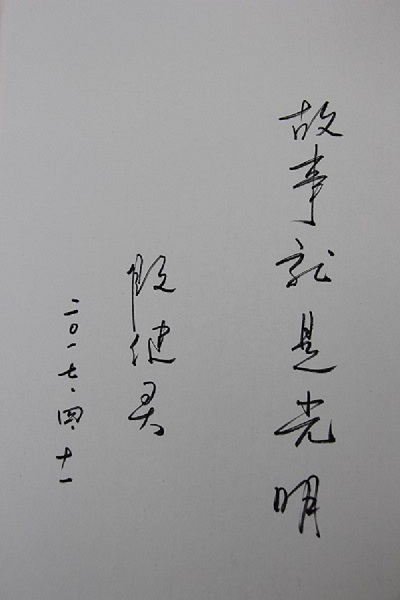 故事就是光明
殷健灵
二〇一七.四.十一